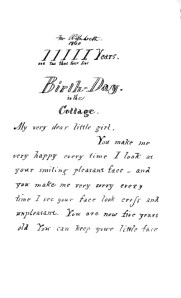 For
1860
11111 Years.
Birth-Day.
in the
Cottage.
My very dear little girl.
You make me
very happy every time I look at
your smiling pleasant face - and
you make me very sorry every
time I see your face look cross and
unpleasant. You are now five years
old You can keep your little face